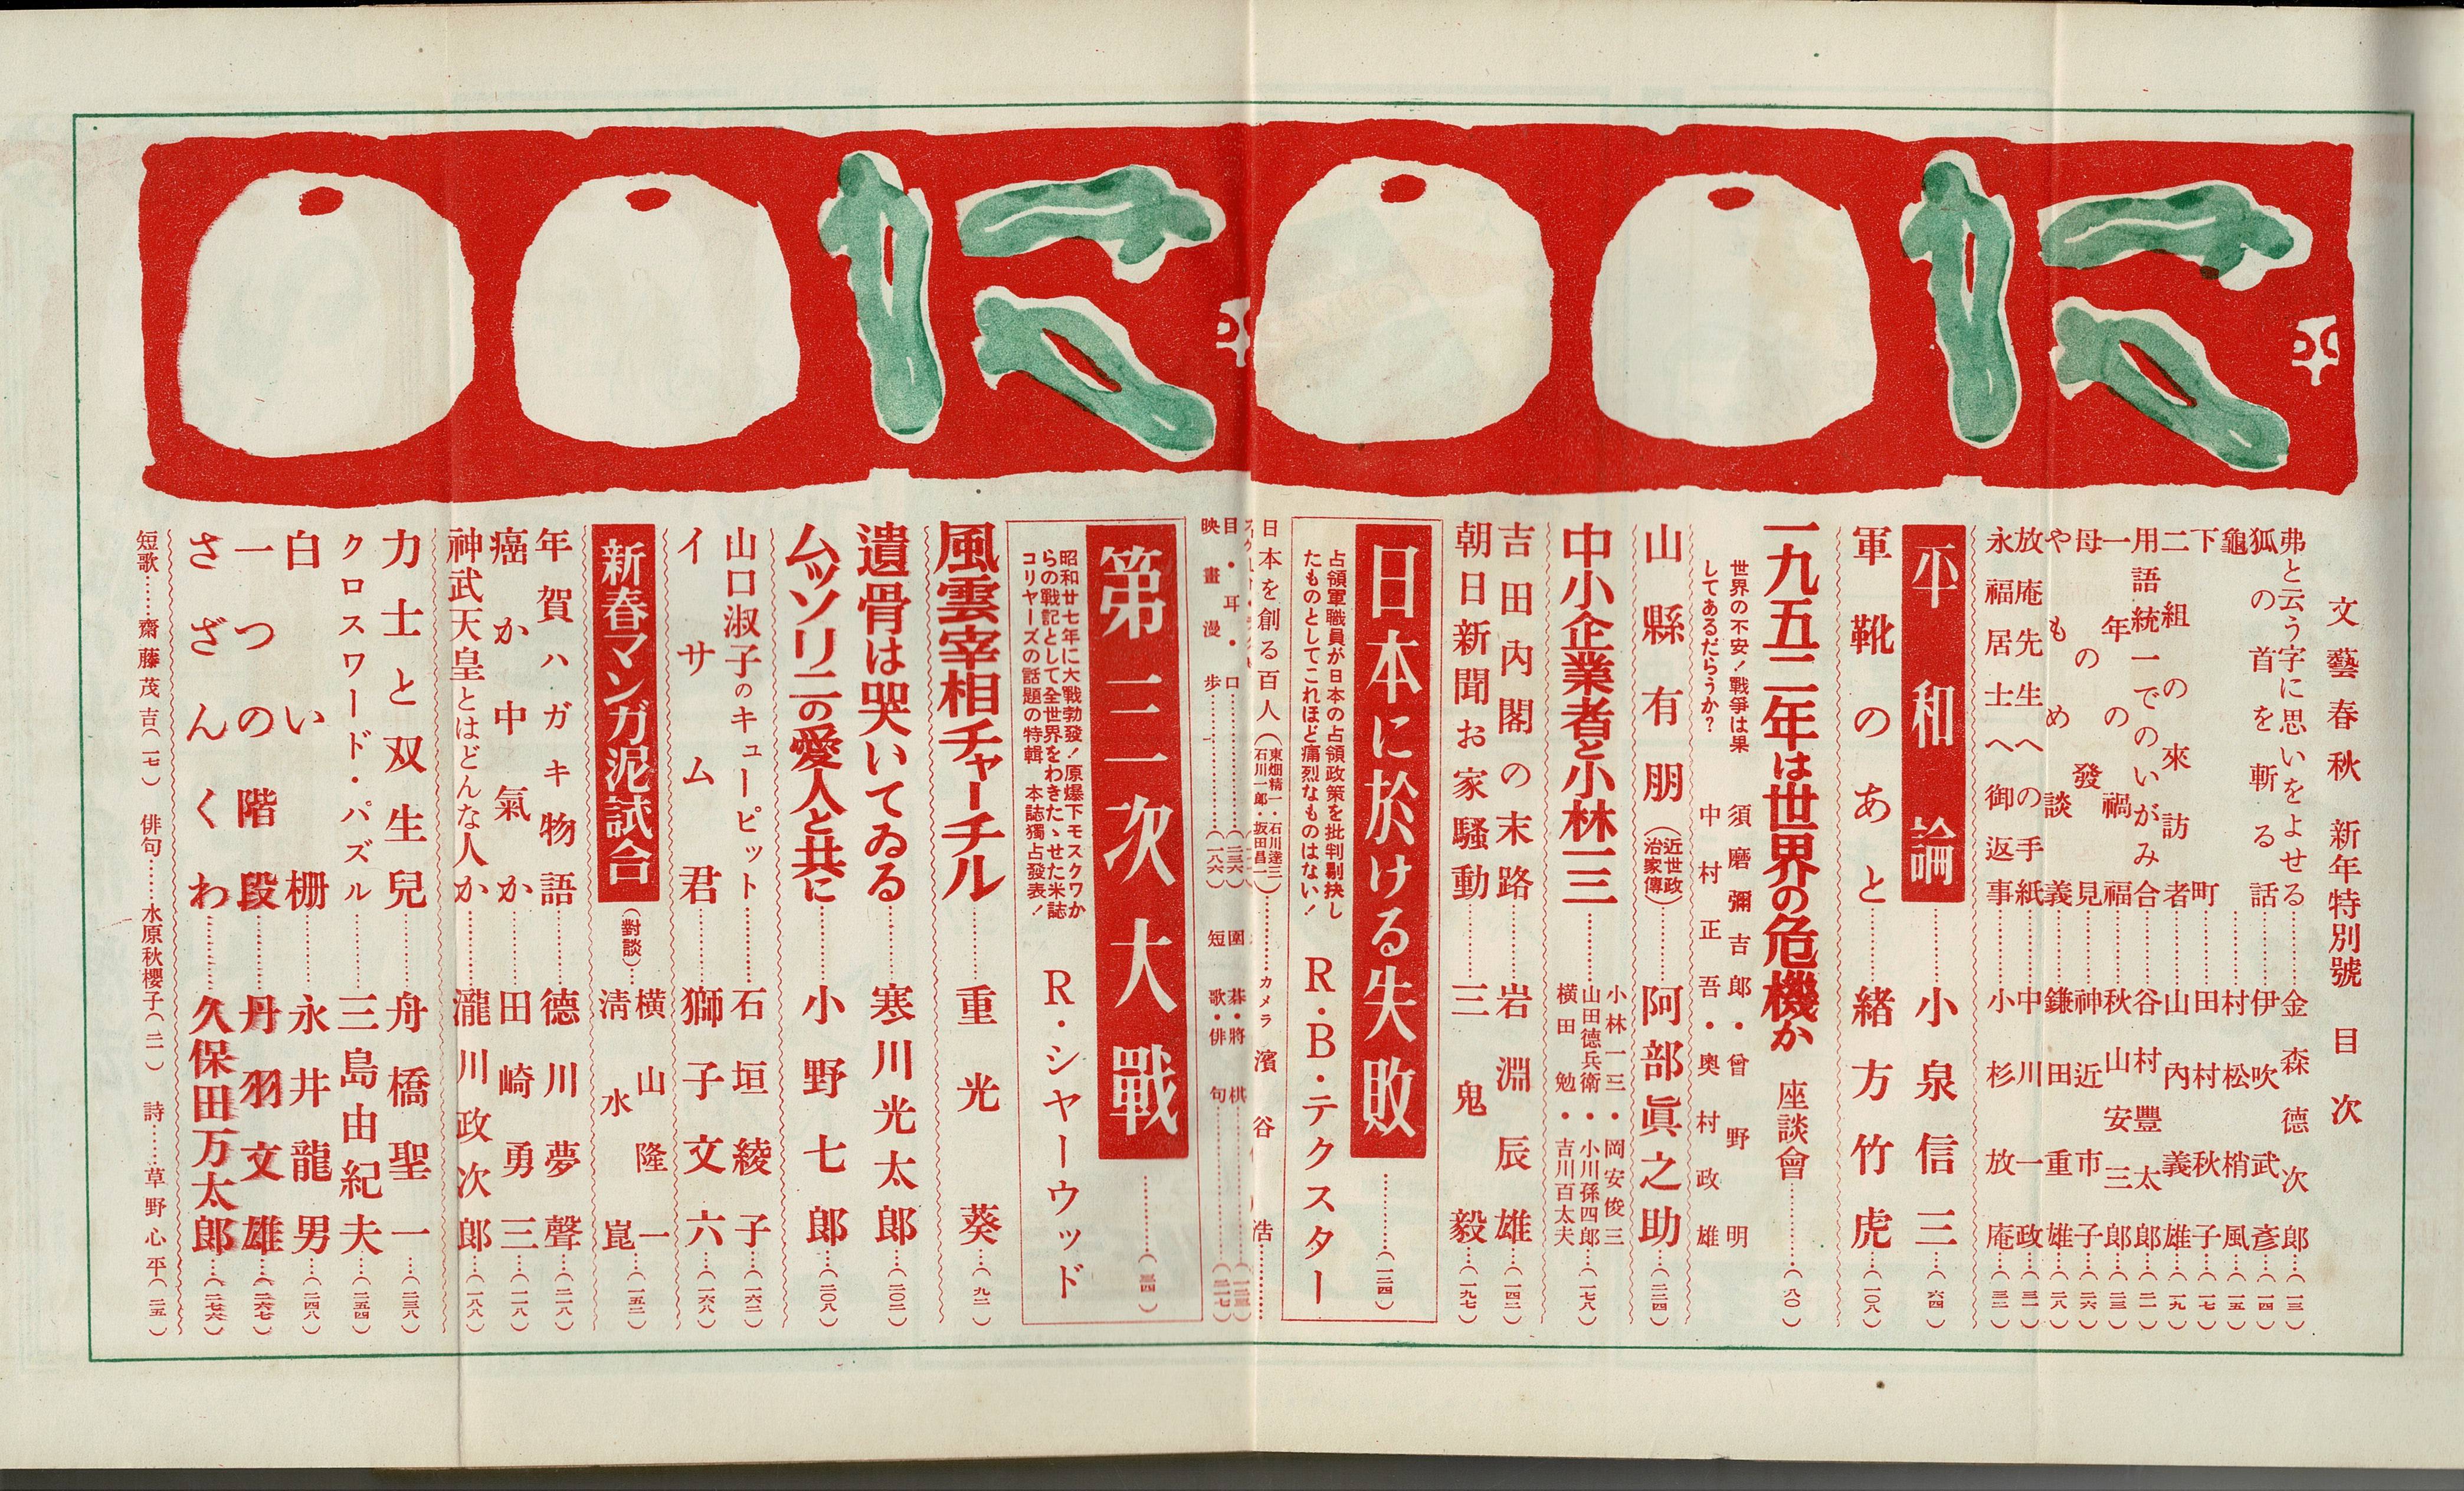 文藝春秋 新年特別號 目次
弗と云う字に思いをよせる……金森德次郎…(一三)
狐の首を斬る話……伊吹武彥…(一四)
龜……村松梢風…(一五)
下町……田村秋子…(一七)
二組の來訪者……山內義雄…(一九)
用語統一でのいがみ合……谷村豐太郎…(二一)
一年の禍福……秋山安三郎…(二三)
母の發見……神近市子…(二六)
やもめ談義……鎌田重雄…(二八)
放庵先生への手紙……中川一政…(三一)
永福居士へ御返事……小杉放庵…(三二)
平和論……小泉信三…(六四)
軍靴のあと……緒方竹虎…(一〇八)
一九五二年は世界の危機か 座談會……(八〇)
世界の不安!戰爭は果
してあるだらうか?
須磨彌吉郎・曾野明
中村正吾・奧村政雄
山縣有朋(近世政治家傳)……阿部眞之助…(二二四)
中小企業者と小林一三……(一七八)
小林一三・岡安俊三
山田德兵衛・小川孫四郎
横田勉・吉川百太夫
吉田內閣の末路……岩淵辰雄…(一四二)
朝日新聞お家騷動……三鬼毅…(一九七)
日本に於ける失敗……(一二四)
占領軍職員が日本の占領政策を批判剔抉し
たものとしてこれほど痛烈なものはない!
R・B・テクスター
日本を創る百人(東畑精一・石川達三・石川一郎・坂田昌一)……カメラ 濱谷浩……
目・耳・口……(二三六) 圍碁・將棋……
映畫漫步……(一八六) 短歌・俳句……(二一七)
第三次大戰……(三四)
昭和廿七年に大戰勃發!原爆下モスクワか
らの戰記として全世界をわきたゝせた米誌
コリヤーズの話題の特輯 本誌獨占發表!
R・シャーウッド
風雲宰相チャーチル……重光葵…(九二)
遺骨は哭いてゐる……寒川光太郎…(二〇二)
ムッソリニの愛人と共に……小野七郎…(二〇八)
山口淑子のキューピット……石垣綾子…(一六二)
イサム君……獅子文六…(一六八)
新春マンガ泥試合(對談)…横山隆一 淸水崑…(一五二)
年賀ハガキ物語……德川夢聲…(二一八)
癌か中氣か……田崎勇三…(一一八)
神武天皇とはどんな人か……瀧川政次郎…(一八八)
力士と双生兒……舟橋聖一…(二三八)
クロスワード・パズル……三島由紀夫…(二五四)
白い柵……永井龍男…(二四八)
一つの階段……丹羽文雄…(二六七)
さざんくわ……久保田万太郎…(二七六)
短歌……齋藤茂吉(一七) 俳句……水原秋櫻子(二一) 詩……草野心平(二五)